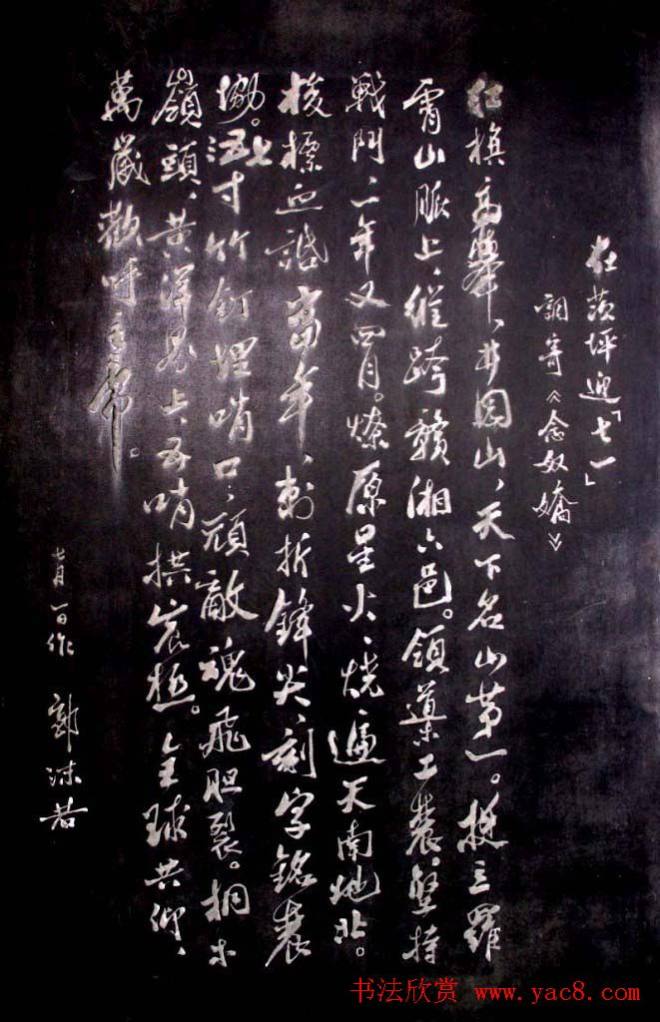 在茨坪迎「七一」
調寄《念奴嬌》
红旗高舉、井岡山,天下名山第一。挺立羅
霄山脈上、縱跨贛湘六邑。領導工農、堅持
戰鬥、二年又四月。燎原星火、燒遍天南地北。
梭標血誌當年、刺折鋒尖、刻字銘農
協。寸竹釘埋哨口、頑敵魂飛胆裂。桐木
嶺頭、黃洋界上、五哨拱宸極。全球共仰、
萬歲歡呼主席。
七月一日作 郭沫若
书法欣赏 www.yac8.com